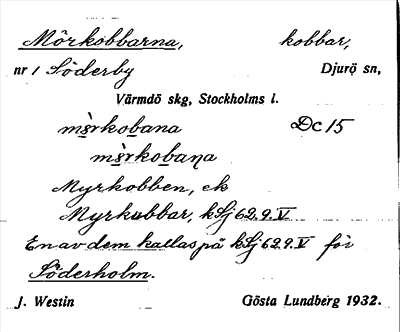 Mörkobbarna, kobbar,
nr 1 Söderby Djurö sn,
Värmdö skg, Stockholms l.
ms̀rkobana Dc 15
ms̀rkobaṇa
Myrkobben, ek
Myrkobbar, kSj 62.9.V
En av dem kallas på kSj 62.9.V för
Söderholm.
J. Westin Gösta Lundberg 1932.